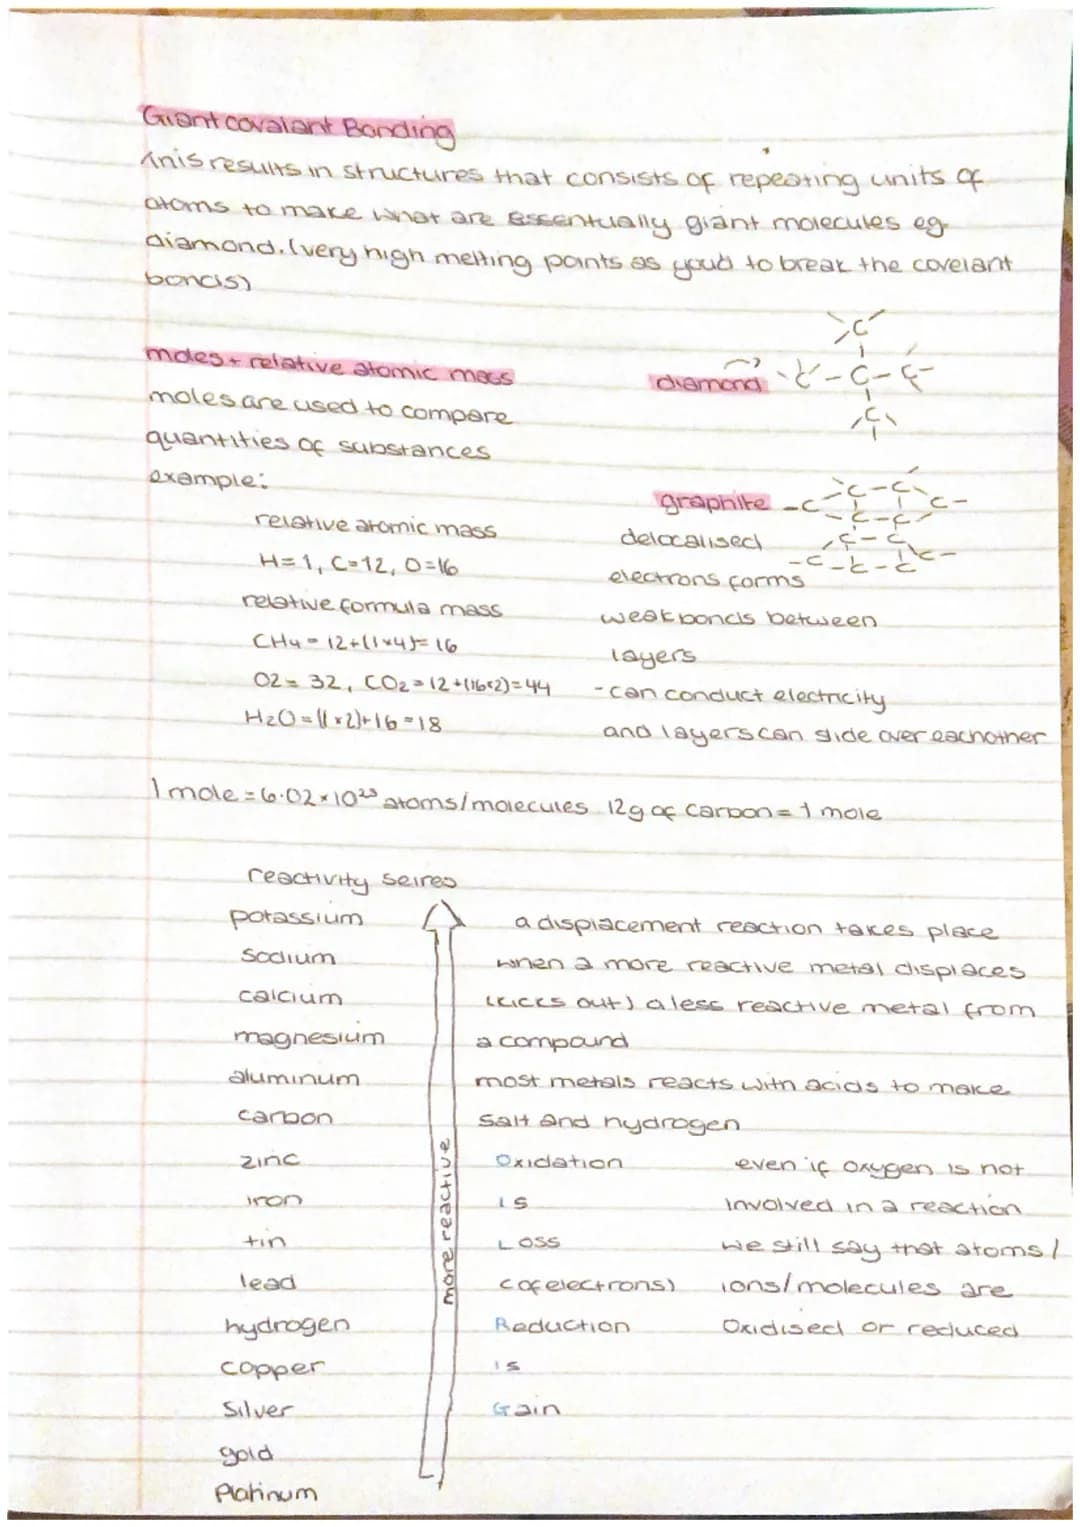 Giant covalant Bonding
this results in structures that consists of repeating units of
atoms to make what are essentually giant molecules eg
diamond. (very high melting points as youd to break the covelant
bonds)
moles + relative atomic mass
moles are used to compare
quantities of substances
example:
relative atomic mass
H=1, C=12, O=16
relative formula mass
CH4 = 12+(1×4)= 16
O2= 32, CO2=12+(16×2)=44
H2O=(1×2)+16=18
diamond
C
C-C-C
C
graphite
C-C
-C C-
C-C
C-C
-C C-
C-C
delocalised
electrons forms
weak bonds between
layers
-can conduct electricity
and layers can slide over eachother
1 mole = 6.02×10²³ atoms/molecules 12g of carbon = 1 mole
reactivity seires
potassium
sodium
calcium
magnesium
aluminum
carbon
zinc
iron
tin
lead
hydrogen
copper
silver
gold
Platinum
more reactive
a displacement reaction takes place
when a more reactive metal displaces
(kicks out) a less reactive metal from
a compound
most metals reacts with acids to make
salt and hydrogen
Oxidation
is
Loss
(of electrons)
Reduction
is
Gain
even if oxygen is not
involved in a reaction
we still say that atoms/
ions/molecules are
Oxidised or reduced